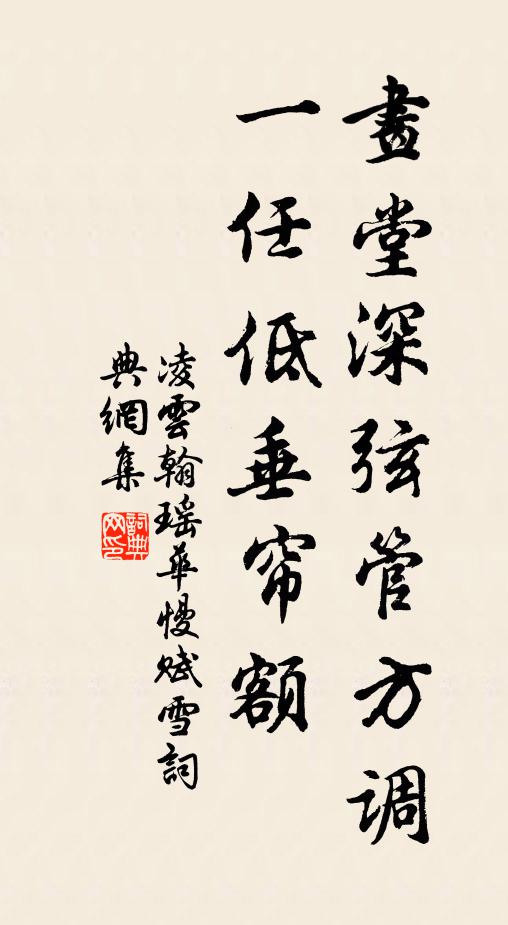 畫堂深弦管方调
一任低垂帘額
凌雲翰瑶華慢賦雪詞
典網集
詞典網印